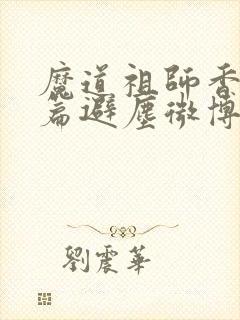 魔道祖師香
篇避塵微博
劉震華